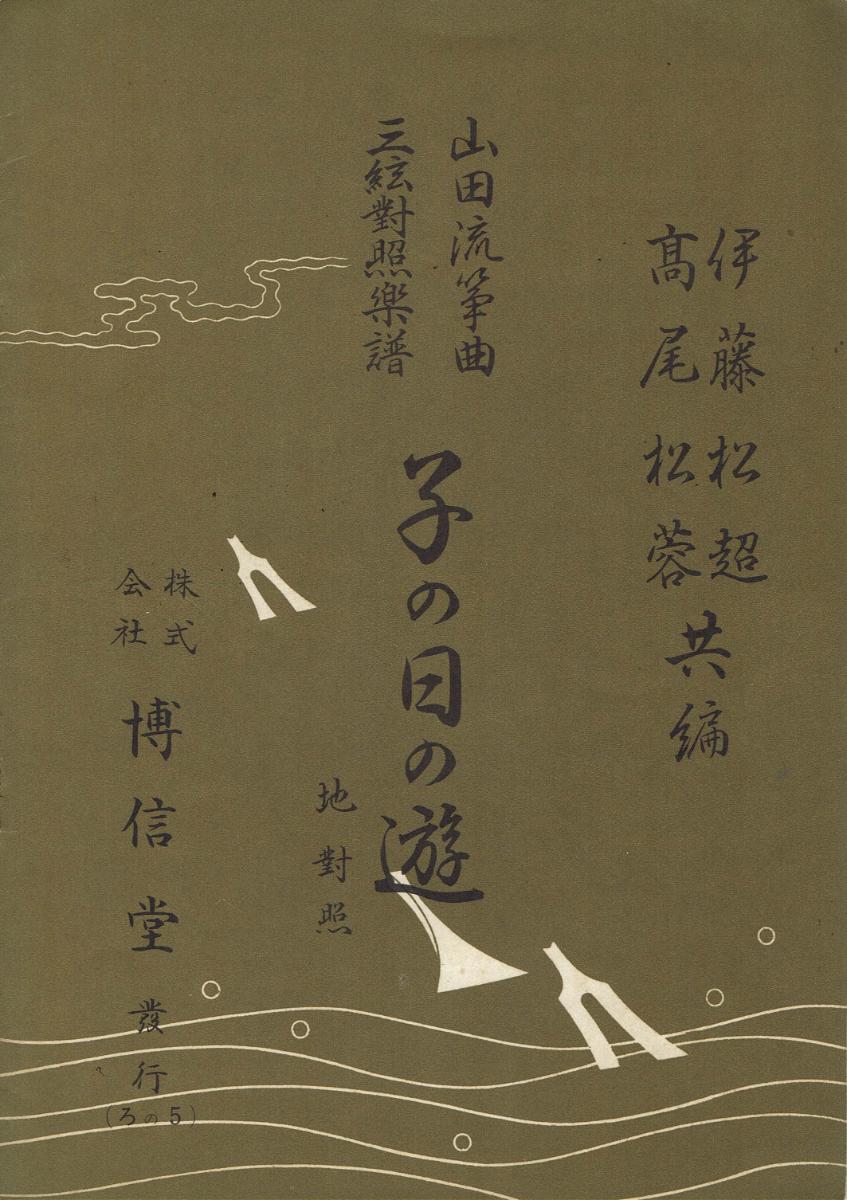 伊藤松超
髙尾松蓉
共編
山田流箏曲
三絃對照樂譜
子の日の遊
地對照
株式
会社
博信堂
發行
(ろの5)